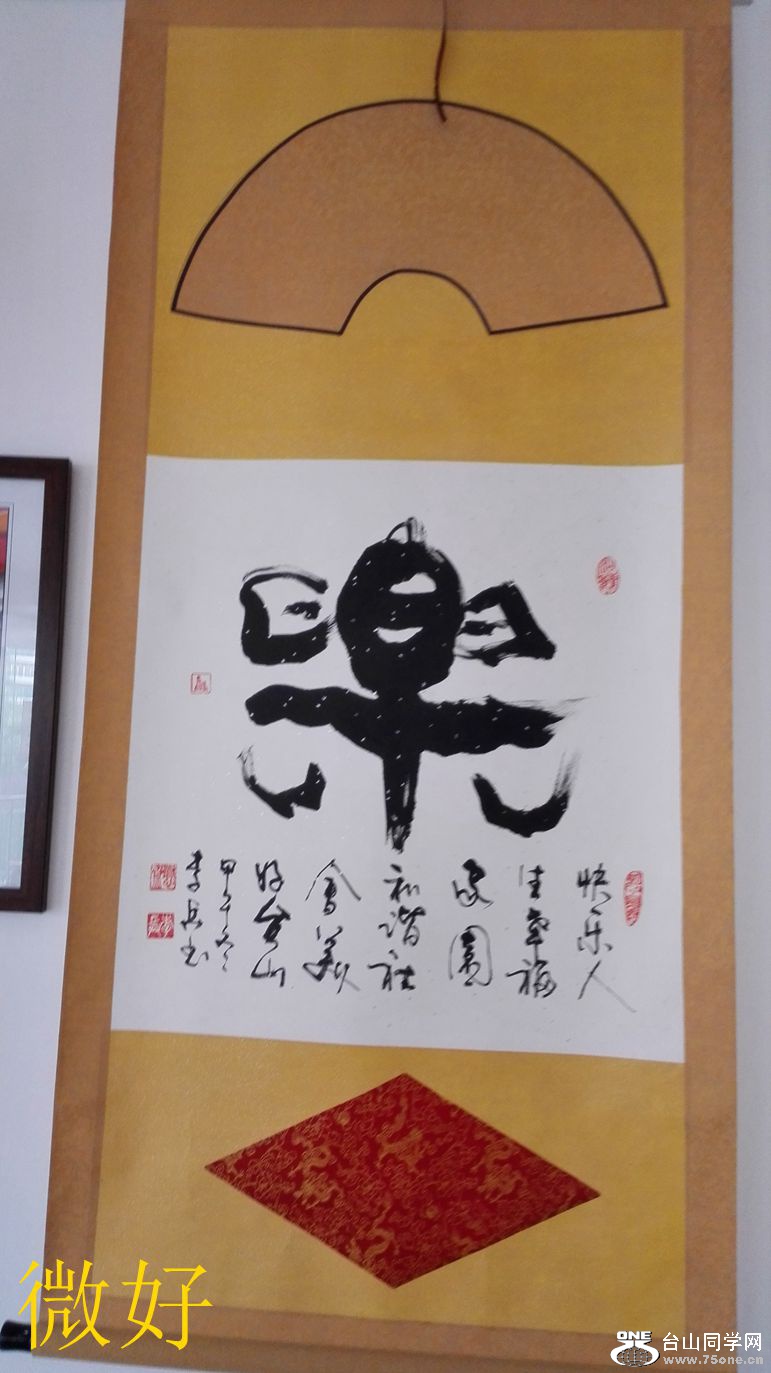 樂
快乐人
生幸福
家園
和谐社
會美
好台山
甲午
微好
ONE
台山同学网
www.75one.cn